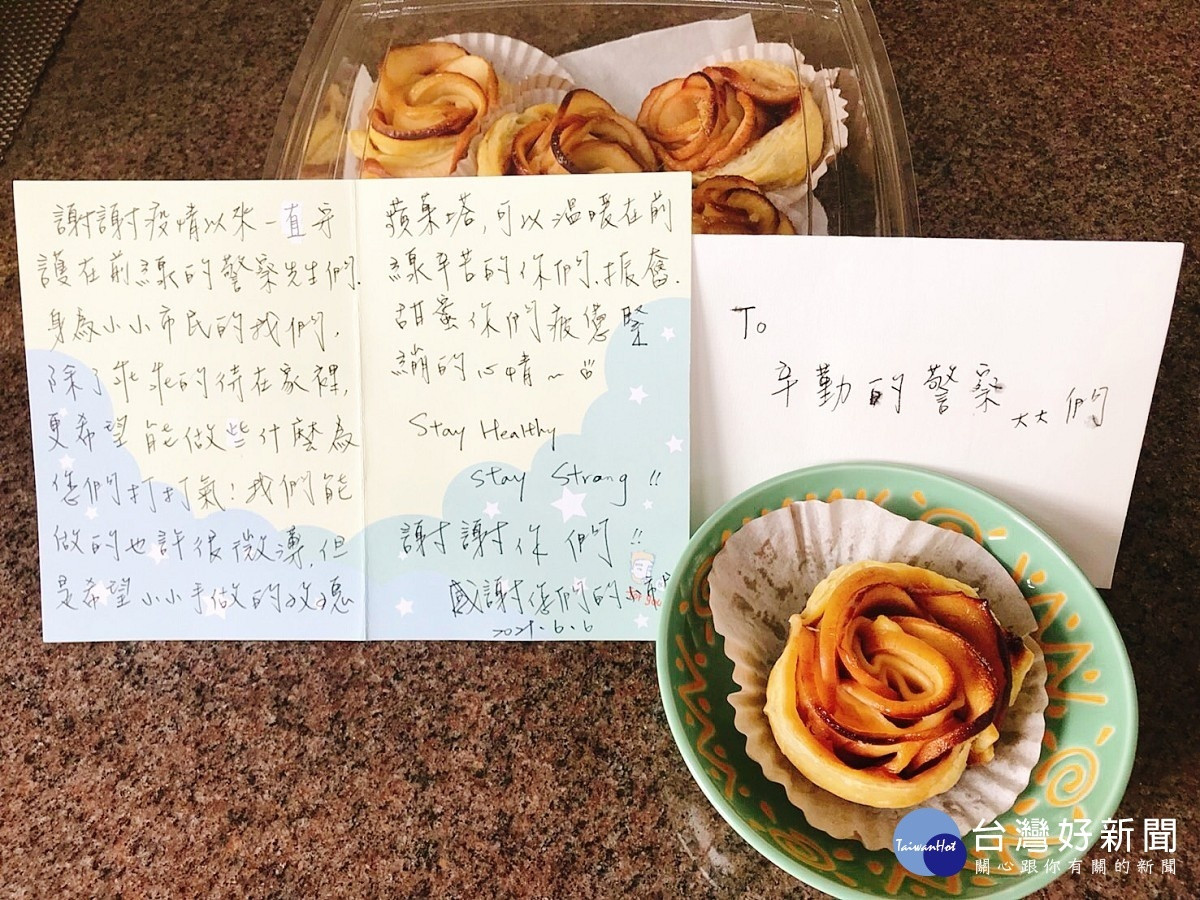 謝謝疫情以來一直守
護在前線的警察先生們.
身為小小市民的我們,
除了乖乖的待在家裡,
更希望能做些什麼為
您們打打氣!我們能
做的也許很微薄,但
是希望小小手做的玫瑰
蘋菓塔,可以溫暖在前
線辛苦的你們.振奮.
甜蜜你們疲憊緊
繃的心情~
Stay Healthy
Stay Strong !!
謝謝你們!!
感謝您們的
2021.6.6
To
辛勤的警察大大們
TaiwanHot
台灣好新聞
關心跟你有關的新聞